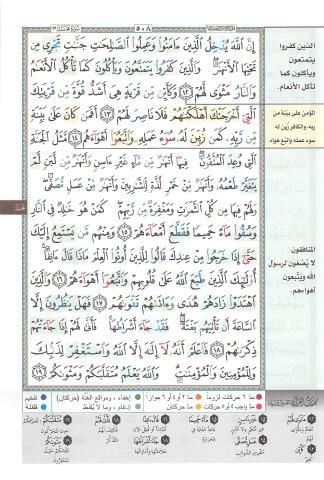 ٥٠٨
إِنَّ ٱللَّهَ يُدْخِلُ ٱلَّذِينَ ءَامَنُوا۟ وَعَمِلُوا۟ ٱلصَّٰلِحَٰتِ جَنَّٰتٍ تَجْرِى مِن
تَحْتِهَا ٱلْأَنْهَٰرُ ۖ وَٱلَّذِينَ كَفَرُوا۟ يَتَمَتَّعُونَ وَيَأْكُلُونَ كَمَا تَأْكُلُ ٱلْأَنْعَٰمُ
وَٱلنَّارُ مَثْوًى لَّهُمْ ١٢ وَكَأَيِّن مِّن قَرْيَةٍ هِىَ أَشَدُّ قُوَّةً مِّن قَرْيَتِكَ
ٱلَّتِىٓ أَخْرَجَتْكَ أَهْلَكْنَٰهُمْ فَلَا نَاصِرَ لَهُمْ ١٣ أَفَمَن كَانَ عَلَىٰ بَيِّنَةٍ
مِّن رَّبِّهِۦ كَمَن زُيِّنَ لَهُۥ سُوٓءُ عَمَلِهِۦ وَٱتَّبَعُوٓا۟ أَهْوَآءَهُم ١٤ مَّثَلُ ٱلْجَنَّةِ
ٱلَّتِى وُعِدَ ٱلْمُتَّقُونَ ۖ فِيهَآ أَنْهَٰرٌ مِّن مَّآءٍ غَيْرِ ءَاسِنٍ وَأَنْهَٰرٌ مِّن لَّبَنٍ لَّمْ
يَتَغَيَّرْ طَعْمُهُۥ وَأَنْهَٰرٌ مِّنْ خَمْرٍ لَّذَّةٍ لِّلشَّٰرِبِينَ وَأَنْهَٰرٌ مِّنْ عَسَلٍ مُّصَفًّى ۖ
وَلَهُمْ فِيهَا مِن كُلِّ ٱلثَّمَرَٰتِ وَمَغْفِرَةٌ مِّن رَّبِّهِمْ ۖ كَمَنْ هُوَ خَٰلِدٌ فِى ٱلنَّارِ
وَسُقُوا۟ مَآءً حَمِيمًا فَقَطَّعَ أَمْعَآءَهُمْ ١٥ وَمِنْهُم مَّن يَسْتَمِعُ إِلَيْكَ
حَتَّىٰٓ إِذَا خَرَجُوا۟ مِنْ عِندِكَ قَالُوا۟ لِلَّذِينَ أُوتُوا۟ ٱلْعِلْمَ مَاذَا قَالَ ءَانِفًا ۚ
أُو۟لَٰٓئِكَ ٱلَّذِينَ طَبَعَ ٱللَّهُ عَلَىٰ قُلُوبِهِمْ وَٱتَّبَعُوٓا۟ أَهْوَآءَهُمْ ١٦ وَٱلَّذِينَ
ٱهْتَدَوْا۟ زَادَهُمْ هُدًى وَءَاتَىٰهُمْ تَقْوَىٰهُمْ ١٧ فَهَلْ يَنظُرُونَ إِلَّا
ٱلسَّاعَةَ أَن تَأْتِيَهُم بَغْتَةً ۖ فَقَدْ جَآءَ أَشْرَاطُهَا ۚ فَأَنَّىٰ لَهُمْ إِذَا جَآءَتْهُمْ
ذِكْرَىٰهُمْ ١٨ فَٱعْلَمْ أَنَّهُۥ لَآ إِلَٰهَ إِلَّا ٱللَّهُ وَٱسْتَغْفِرْ لِذَنۢبِكَ
وَلِلْمُؤْمِنِينَ وَٱلْمُؤْمِنَٰتِ ۗ وَٱللَّهُ يَعْلَمُ مُتَقَلَّبَكُمْ وَمَثْوَىٰكُمْ ١٩
الذين كفروا
يتمتعون
ويأكلون كما
تأكل الأنعام.
المؤمن على بينة من
ربه، والكافر زين له
سوء عمله واتبع هواه.
المنافقون
لا يُصغون لرسول
الله ويتبعون
أهواءهم.
مد ٦ حركات لزوماً مد ٢ أو ٤ أو ٦ جوازاً إخفاء، ومواقع الغنّة (حركتان) تفخيم
مد واجب ٤ أو ٥ حركات مد حركتان إدغام، وما لا يُلفظ قلقلة